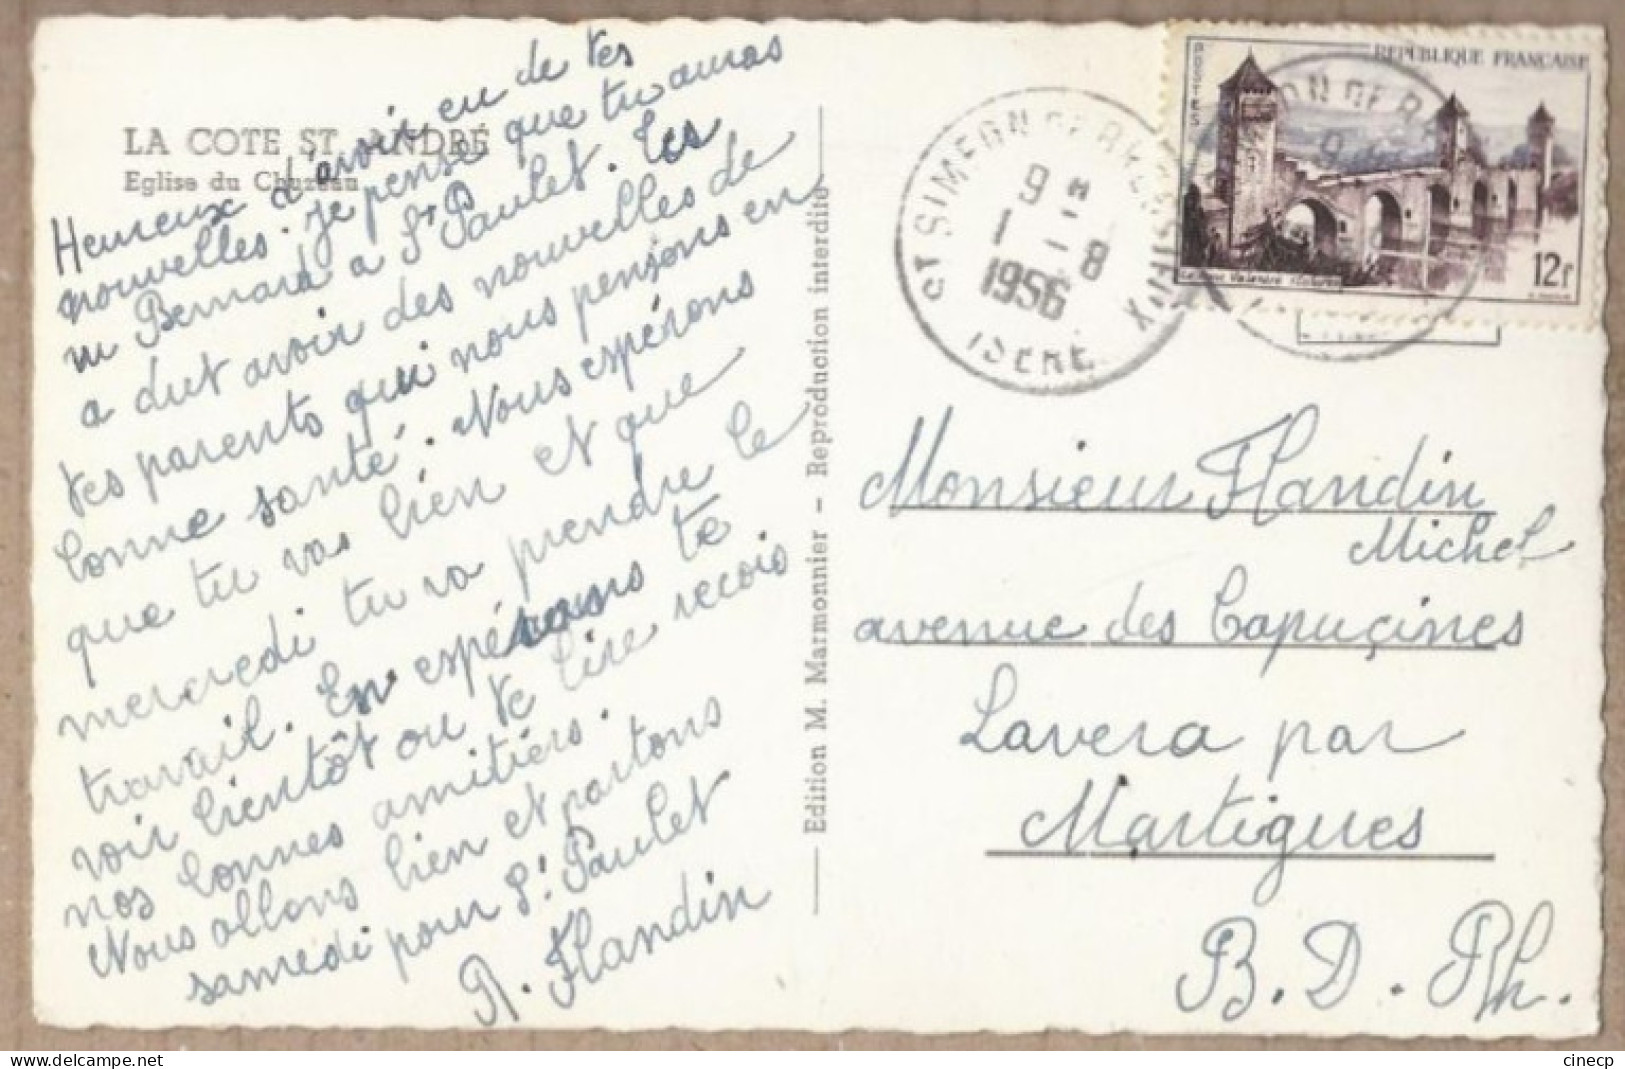 LA COTE ST ANDRÉ
Eglise du Chuzeau
Heureux d'avoir eu de tes
nouvelles. je pense que tu auras
vu Bernard a St Paulet. Les
a dut avoir des nouvelles de
tes parents qui nous pensions en
bonne santé. Nous espérons
que tu vas bien et que
mercredi tu va prendre le
travail. En espérans te
voir bientôt ou te lire recois
nos bonnes amitiers.
Nous allons bien et partons
samedi pour St Paulet
R. Flandin
Edition M. Marmonnier - Reproduction interdite
ST SIMEON DE BRESSIEUX
9 H
1 - 8
1956
ISERE
REPUBLIQUE FRANÇAISE
POSTES
12f
Monsieur Flandin
Michel
avenue des Capuçines
Lavera par
Martigues
B. D. Rh.
cinecp